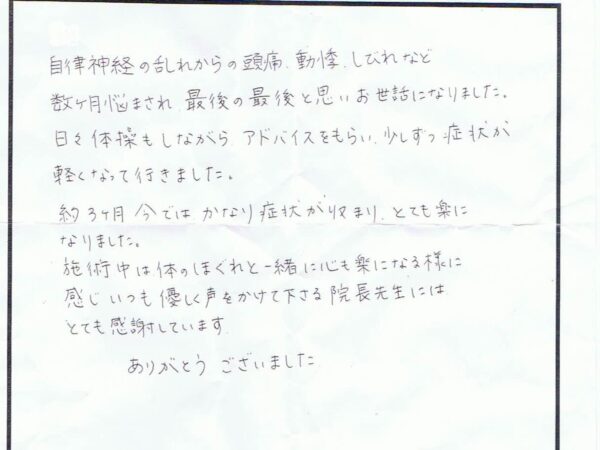 自律神経の乱れからの頭痛、動悸、しびれなど
数ヶ月悩まされ、最後の最後と思いお世話になりました。
日々体操もしながら、アドバイスをもらい、少しずつ症状が
軽くなって行きました。
約3ヶ月 今では かなり症状が収まり、とても楽に
なりました。
施術中は体のほぐれと一緒に心も楽になる様に
感じ いつも 優しく声をかけて下さる 院長先生には
とても感謝しています。
ありがとう ございました